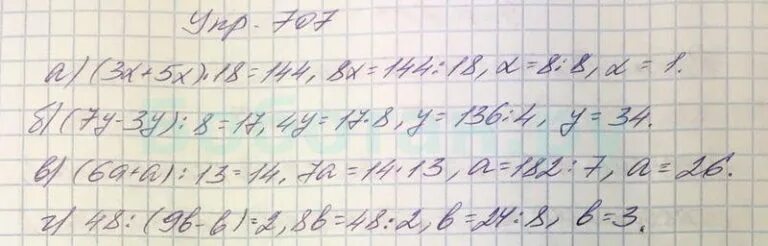 Упр. 707
а) (3x+5x)·18=144, 8x=144:18, x=8:8, x=1.
б) (7y-3y):8=17, 4y=17·8, y=136:4, y=34.
в) (6a+a):13=14, 7a=14·13, a=182:7, a=26.
г) 48:(9b-b)=2, 8b=48:2, b=24:8, b=3.